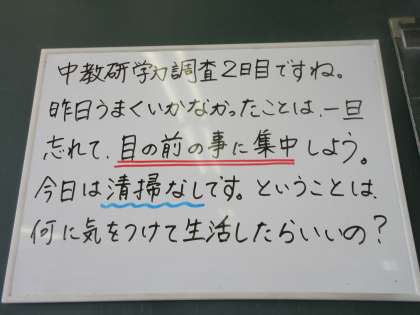 中教研学力調査2日目ですね。
昨日うまくいかなかったことは、一旦
忘れて、目の前の事に集中しよう。
今日は清掃なしです。ということは、
何に気をつけて生活したらいいの？